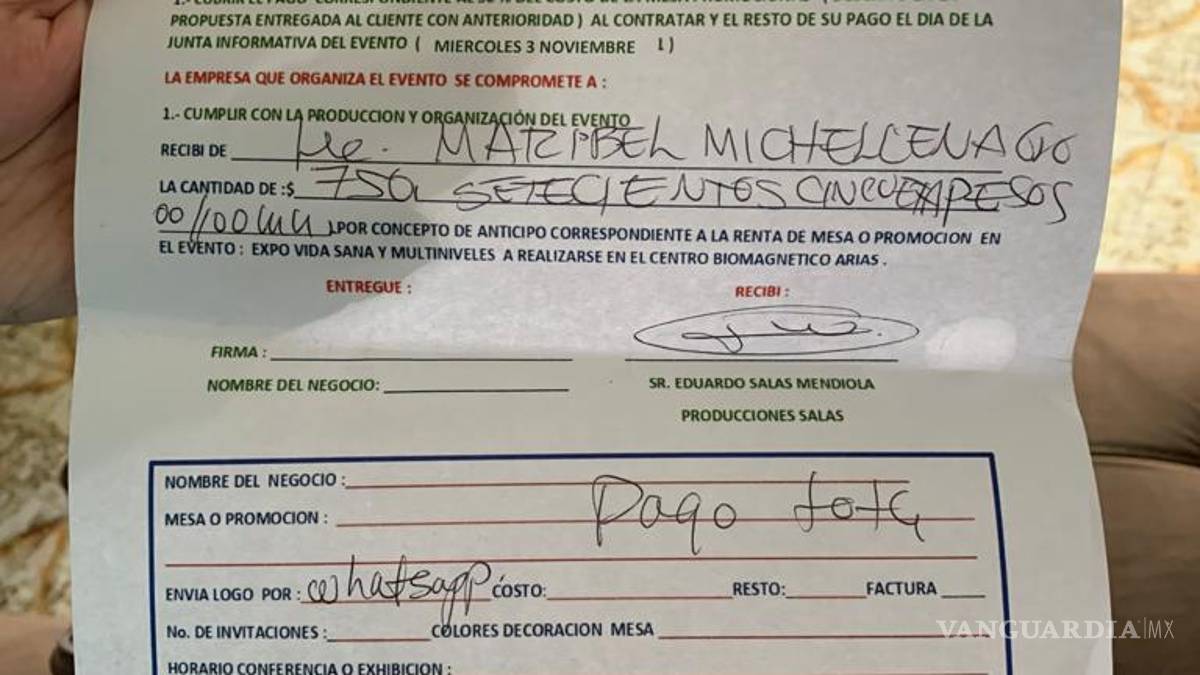 PROPUESTA ENTREGADA AL CLIENTE CON ANTERIORIDAD ) AL CONTRATAR Y EL RESTO DE SU PAGO EL DIA DE LA
JUNTA INFORMATIVA DEL EVENTO ( MIERCOLES 3 NOVIEMBRE )
LA EMPRESA QUE ORGANIZA EL EVENTO SE COMPROMETE A :
1.- CUMPLIR CON LA PRODUCCION Y ORGANIZACIÓN DEL EVENTO
RECIBI DE Lic. MARIBEL MICHEL
LA CANTIDAD DE :$ 750 SETECIENTOS PESOS
00/100 ).POR CONCEPTO DE ANTICIPO CORRESPONDIENTE A LA RENTA DE MESA O PROMOCION EN
EL EVENTO : EXPO VIDA SANA Y MULTINIVELES A REALIZARSE EN EL CENTRO BIOMAGNETICO ARIAS .
ENTREGUE : RECIBI :
FIRMA :
NOMBRE DEL NEGOCIO: SR. EDUARDO SALAS MENDIOLA
PRODUCCIONES SALAS
NOMBRE DEL NEGOCIO :
MESA O PROMOCION : Pago
ENVIA LOGO POR : whatsapp CÓSTO: RESTO: FACTURA
No. DE INVITACIONES : COLORES DECORACION MESA
HORARIO CONFERENCIA O EXHIBICION :
VANGUARDIA|MX